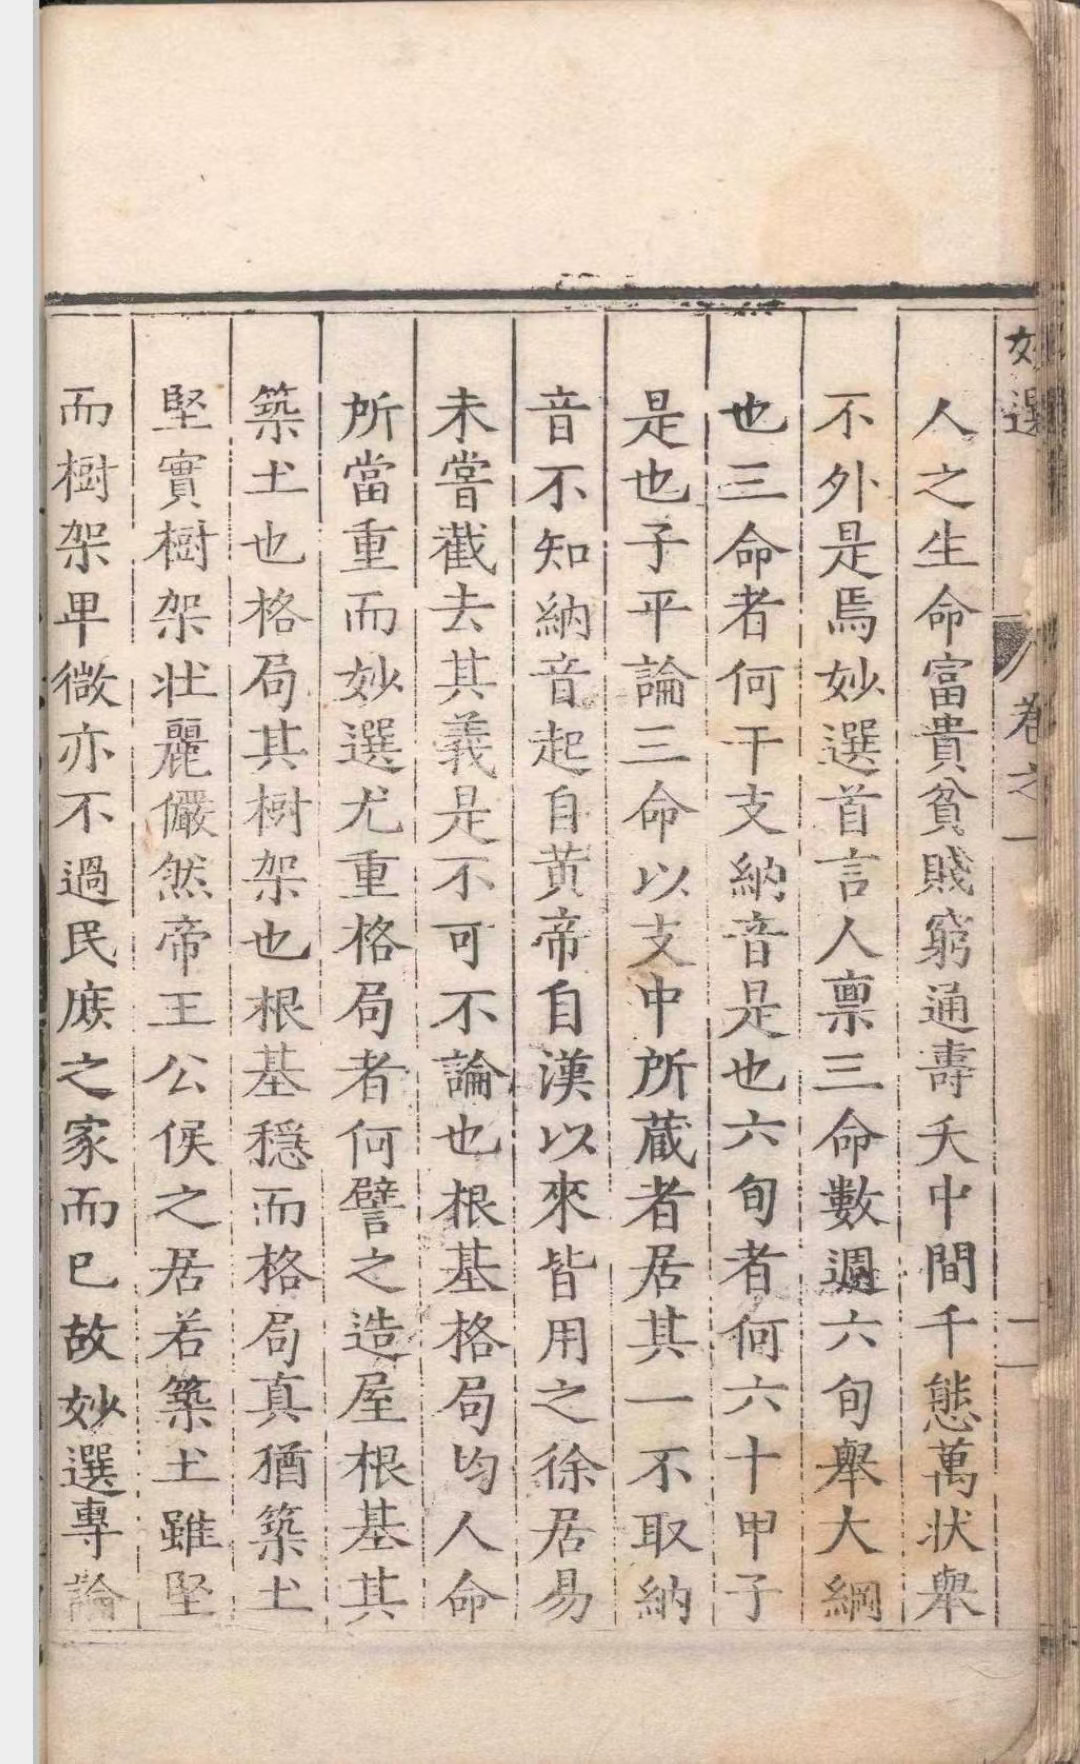 妙選 卷之一 二
人之生命富貴貧賤窮通壽夭中間千態萬狀舉
不外是焉妙選首言人禀三命數週六旬舉大綱
也三命者何干支納音是也六旬者何六十甲子
是也子平論三命以支中所蔵者居其一不取納
音不知納音起自黄帝自漢以來皆用之徐居易
未嘗截去其義是不可不論也根基格局均人命
所當重而妙選尤重格局者何譬之造屋根基其
築土也格局其樹架也根基穩而格局真猶築土
堅實樹架壮麗儼然帝王公侯之居若築土雖堅
而樹架卑微亦不過民庶之家而已故妙選專論